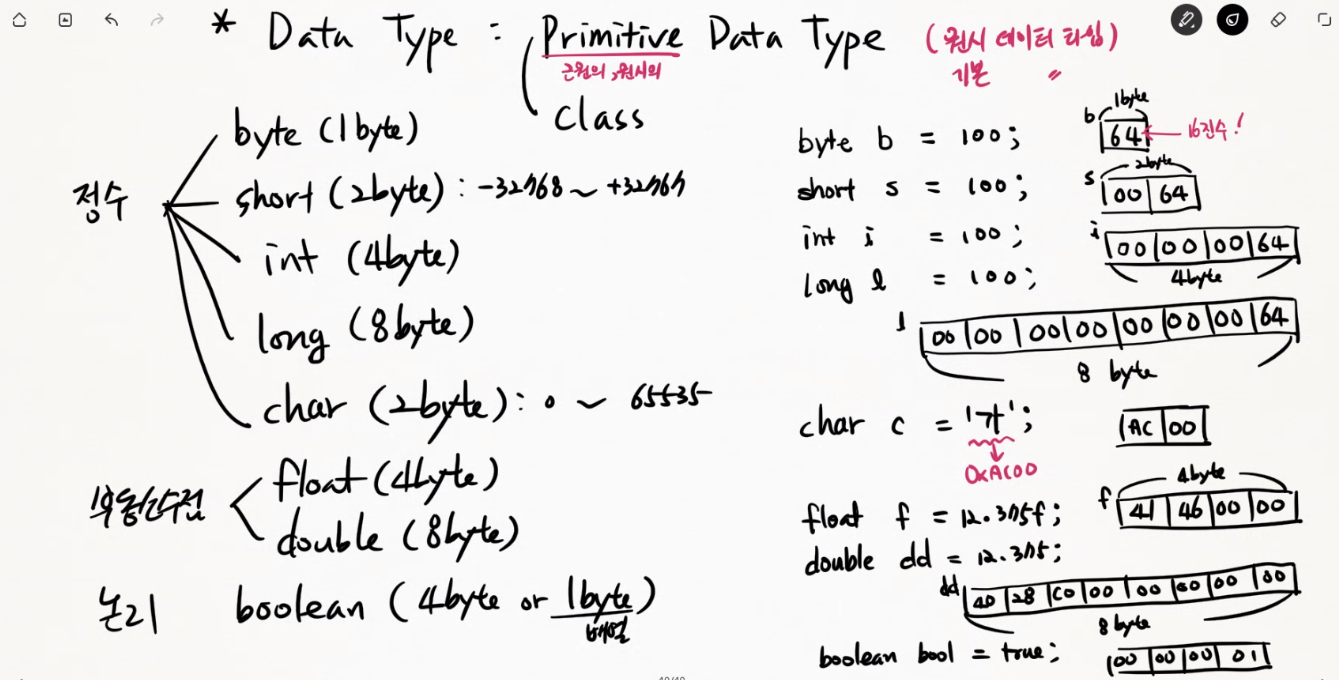 * Data Type : Primitive Data Type (원시 데이터 타입)
근원의, 원시의
기본 〃
class
정수
byte (1byte)
short (2byte) : -32768 ~ +32767
int (4byte)
long (8byte)
char (2byte) : 0 ~ 65535
부동소수점
float (4byte)
double (8byte)
논리
boolean (4byte or 1byte)
배열
1byte
byte b = 100; b 64 ← 16진수!
2byte
short s = 100; s 00 64
int i = 100; i 00 00 00 64
4byte
long l = 100;
l 00 00 00 00 00 00 00 64
8 byte
char c = '가'; AC 00
0xAC00
4byte
float f = 12.375f; f 41 46 00 00
double dd = 12.375;
dd 40 28 C0 00 00 00 00 00
8 byte
boolean bool = true; 00 00 00 01